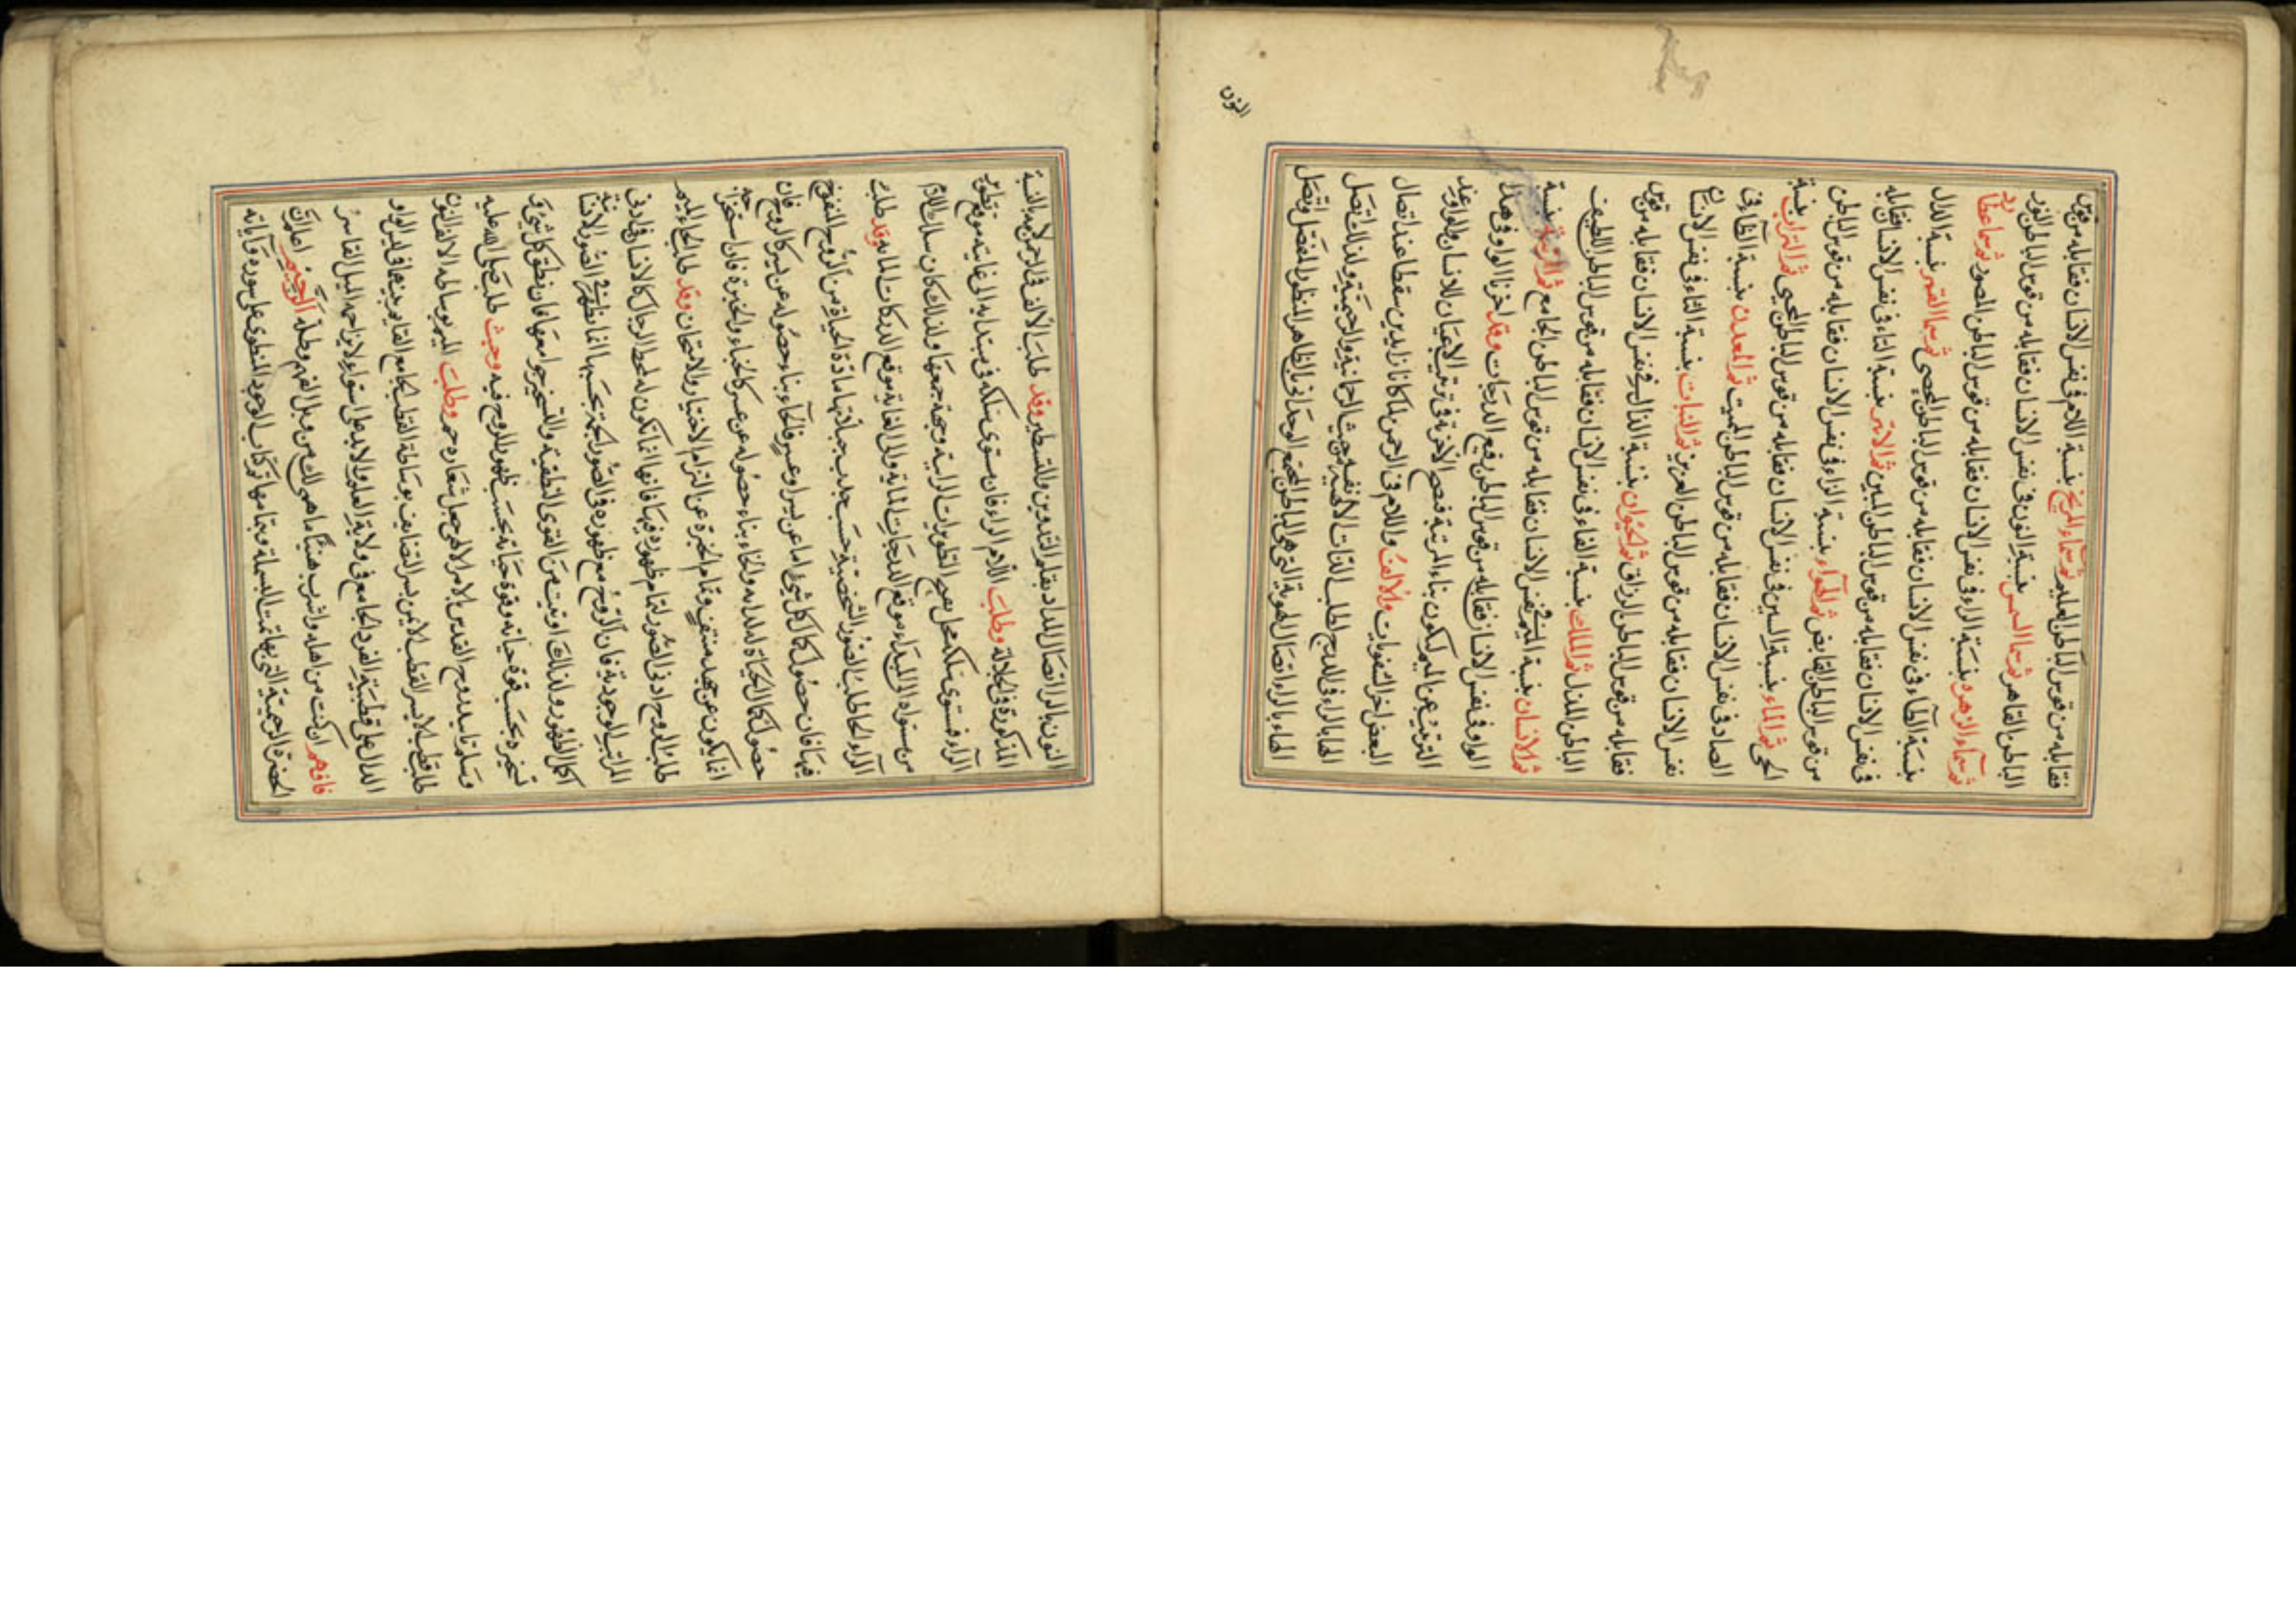 فقابله من قوس الباطن العليم ثم سماء المريخ بنسبة اللام في نفس الانسان فقابله من قوس
الباطن القاهر ثم سما الشمس بنسبة النون في نفس الانسان فقابله من قوس الباطن النور
ثم سماء الزهرة بنسبة الراء في نفس الانسان فقابله من قوس الباطن المصور ثم سما عطارد
بنسبة الطاء في نفس الانسان فقابله من قوس الباطن المحصى ثم سما القمر بنسبة الدال
في نفس الانسان فقابله من قوس الباطن المبين ثم الاثير بنسبة التاء في نفس الانسان فقابله
من قوس الباطن القابض ثم الهواء بنسبة الزاء في نفس الانسان فقابله من قوس الباطن
الحي ثم الماء بنسبة السين في نفس الانسان فقابله من قوس الباطن المحيي ثم التراب بنسبة
الصاد في نفس الانسان فقابله من قوس الباطن المميت ثم المعدن بنسبة الظاء في
نفس الانسان فقابله من قوس الباطن العزيز ثم النبات بنسبة الثاء في نفس الانسان
فقابله من قوس الباطن الرزاق ثم الحيوان بنسبة الذال في نفس الانسان فقابله من قوس
الباطن المذل ثم الملك بنسبة الفاء في نفس الانسان فقابله من قوس الباطن اللطيف
ثم الانسان بنسبة الميم في نفس الانسان فقابله من قوس الباطن الجامع ثم المرتبة بنسبة
الواو في نفس الانسان فقابله من قوس الباطن رفيع الدرجات وقد اخرنا الواو في هذا
الترتيب عن الميم لكون بناء المرتبة فصح الاخرة في ترتيب الاعيان للانسان والواو عند
البعض اخر الشفويات والالف واللام في الرحمن لما كانا زايدين سقطا عند اتصال
الهاء بالراء في المدرج لطلب الذات الالهية من حيث الرحمانية والرحيمية ولذلك تتصل
الهاء بالراء اتصال الهوية التي هي الباطن المجتمع الوحداني بالظاهر المنظور المفصل وتتصل
النون
النون بالراء اتصال المداد بقلم التدوين والتسطير وقد طلب الالف في الرحمن به بالنسبة
المذكورة في الجلالة وطلبت اللام الراء فان مستوى سلكه في مبتدا به الى غايته موقع تطوير
الراء فمستوى سلك محل بصح التطويرات الرابية وصحة جمعها ولذلك كان سلطان اللام
من مستواه الى المبداء موقع الدرجات العالية والى الغاية موقع الدركات المايه وقد طلبت
الراء الحا طلب الصور الشخصية حسب جبلاتها مادة الحياة من الروح المنفوخ
فيها فان حصول كمال كل شئ اما عن يسر او عسر فالحاء بناء حصوله عن يسر كالروح فان
حصول كمال الحياة له لذاته والخاء بناء حصوله عن عسر كالخباء والخبرة فان استخراجه
انما يكون عن جهد مستقص وتمام الخبرة عن التزام الاختيار والامتحان وقد طلب الحاء الميم
طلب الروح ادنى الصور لتمام ظهوره فيها فانها انما تكون له محط الرحال كالانسان في ادنى
المراتب الوجودية فان الروح مع ظهوره في الصور الجمة بحسبها انما يظهر في الصور الانسانية
اكمل الظهور ولذلك اوتيت من القوى النطقية والتسخير جوامعها فان نطق كل شئ و
تسخيره بحسب قوة حياته وقوة حياته بحسب ظهور الروح فيه وحيث طلب صلى الله عليه
وسلم تاييد روح القدس بالامر الالهي جعل شعاره حم وطلبت الميم بوساطة الالف النون
طلب قطب الايسر القطب الايمن بسر التضايف بوساطة القطب الجامع القايم بينهما في ليس الواو
الدال على قطبية الفرد الجامع في ولاية العلو والايد على استواء لا يزاحمه الميل القاسر
فافهم ان كنت من اهله واشرب هنيئا ما هي لك من وبل الفهم وطله الرحيم اعلم ان
الحضرة الرحيمية التي بها تمت البسملة وبتمامها تم كتاب الوجود المنطوى على سوره وآياته